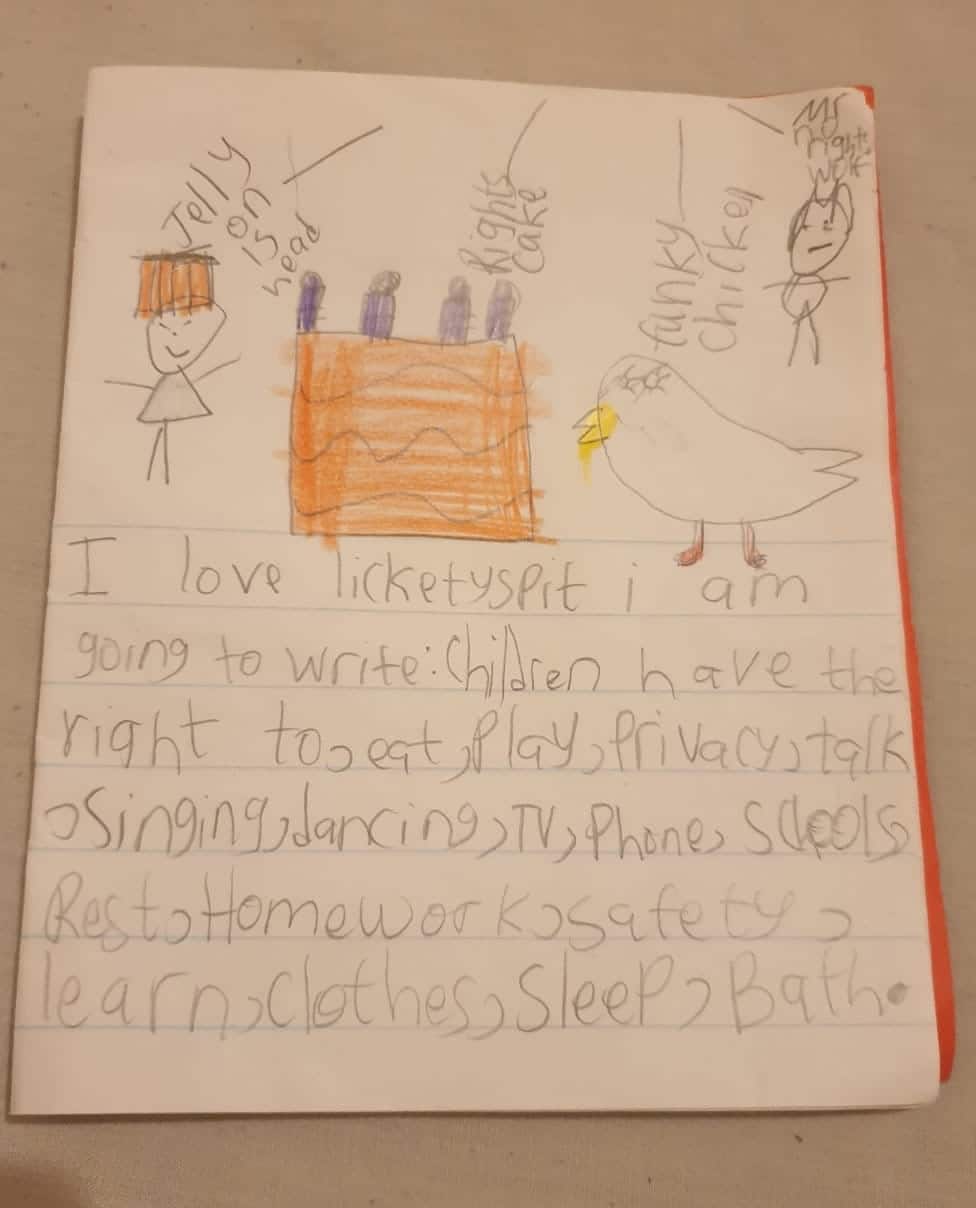 Jelly
on
is
head
Rights
cake
funky
chicken
Mr
rights
wolf
I love licketyspit i am
going to write: Children have the
right to, eat, Play, Privacy, talk
, Singing, dancing, TV, Phone, Schools,
Rest, Homework, safety,
learn, clothes, Sleep, Bath.